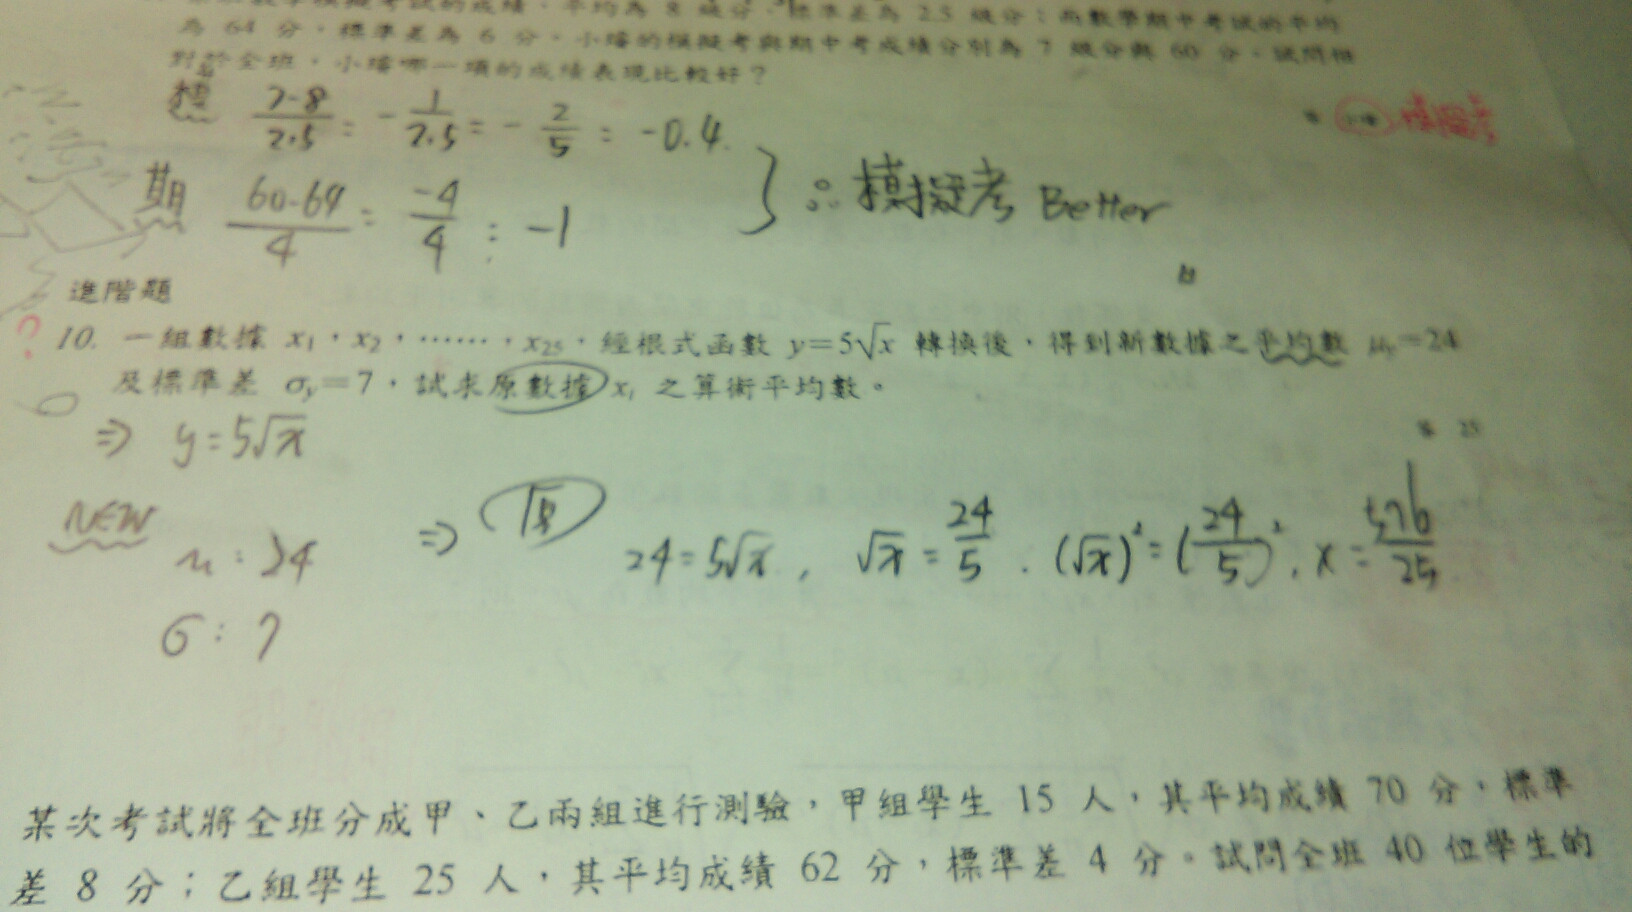 數學模擬考試的成績，平均為 8 級分，標準差為 2.5 級分；而數學期中考試的平均
為 64 分，標準差為 6 分。小瑋的模擬考與期中考成績分別為 7 級分與 60 分。試問相
對於全班，小瑋哪一項的成績表現比較好？
模 7-8/2.5 = -1/2.5 = -2/5 = -0.4
模擬考
期 60-64/4 = -4/4 = -1
} ∴ 模擬考 Better
進階題
? 10. 一組數據 x₁，x₂，……，x₂₅，經根式函數 y=5√x 轉換後，得到新數據之平均數 μy=24
及標準差 σy=7，試求原數據 xᵢ 之算術平均數。
答 25
⇒ y=5√x
NEW
u : 24
σ : 7
⇒ 原 24=5√x , √x = 24/5 . (√x)² = (24/5)² , x = 576/25
某次考試將全班分成甲、乙兩組進行測驗，甲組學生 15 人，其平均成績 70 分，標準
差 8 分；乙組學生 25 人，其平均成績 62 分，標準差 4 分。試問全班 40 位學生的